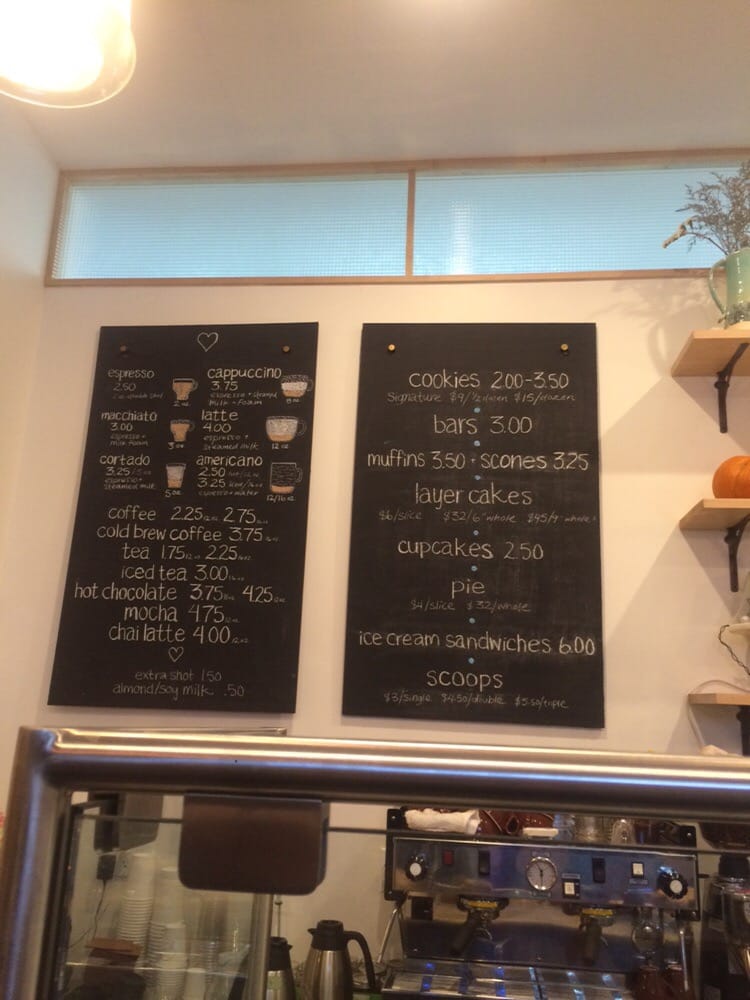 espresso
2.50
2 oz. double shot
2 oz.
cappuccino
3.75
espresso + steamed
milk + foam
8 oz
macchiato
3.00
espresso +
milk foam
3 oz
latte
4.00
espresso +
steamed milk
12 oz
cortado
3.25 / 5 oz
espresso +
steamed milk
5 oz
americano
2.50 hot/12 oz
3.25 iced/16 oz
espresso + water
12/16 oz
coffee 2.25 12 oz. 2.75 16 oz.
cold brew coffee 3.75 16 oz.
tea 1.75 12 oz. 2.25 16 oz.
iced tea 3.00 16 oz.
hot chocolate 3.75 8 oz. 4.25 12 oz.
mocha 4.75 12 oz.
chai latte 4.00 12 oz.
extra shot 1.50
almond/soy milk .50
cookies 2.00-3.50
Signature $9/½ dozen $15/dozen
bars 3.00
muffins 3.50 + scones 3.25
layer cakes
$6/slice $32/6" whole $45/9" whole
cupcakes 2.50
pie
$4/slice $32/whole
ice cream sandwiches 6.00
scoops
$3/single $4.50/double $5.50/triple